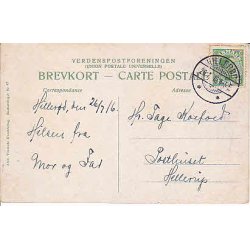 VERDENSPOSTFORENINGEN
(UNION POSTALE UNIVERSELLE)
BREVKORT - CARTE POSTALE
Korrespondance
Adresse
Hillerød, den 26/7 16.
Hilsen fra
Mor og Far
Hr. Tage Korfoed
Posthuset
Hellerup